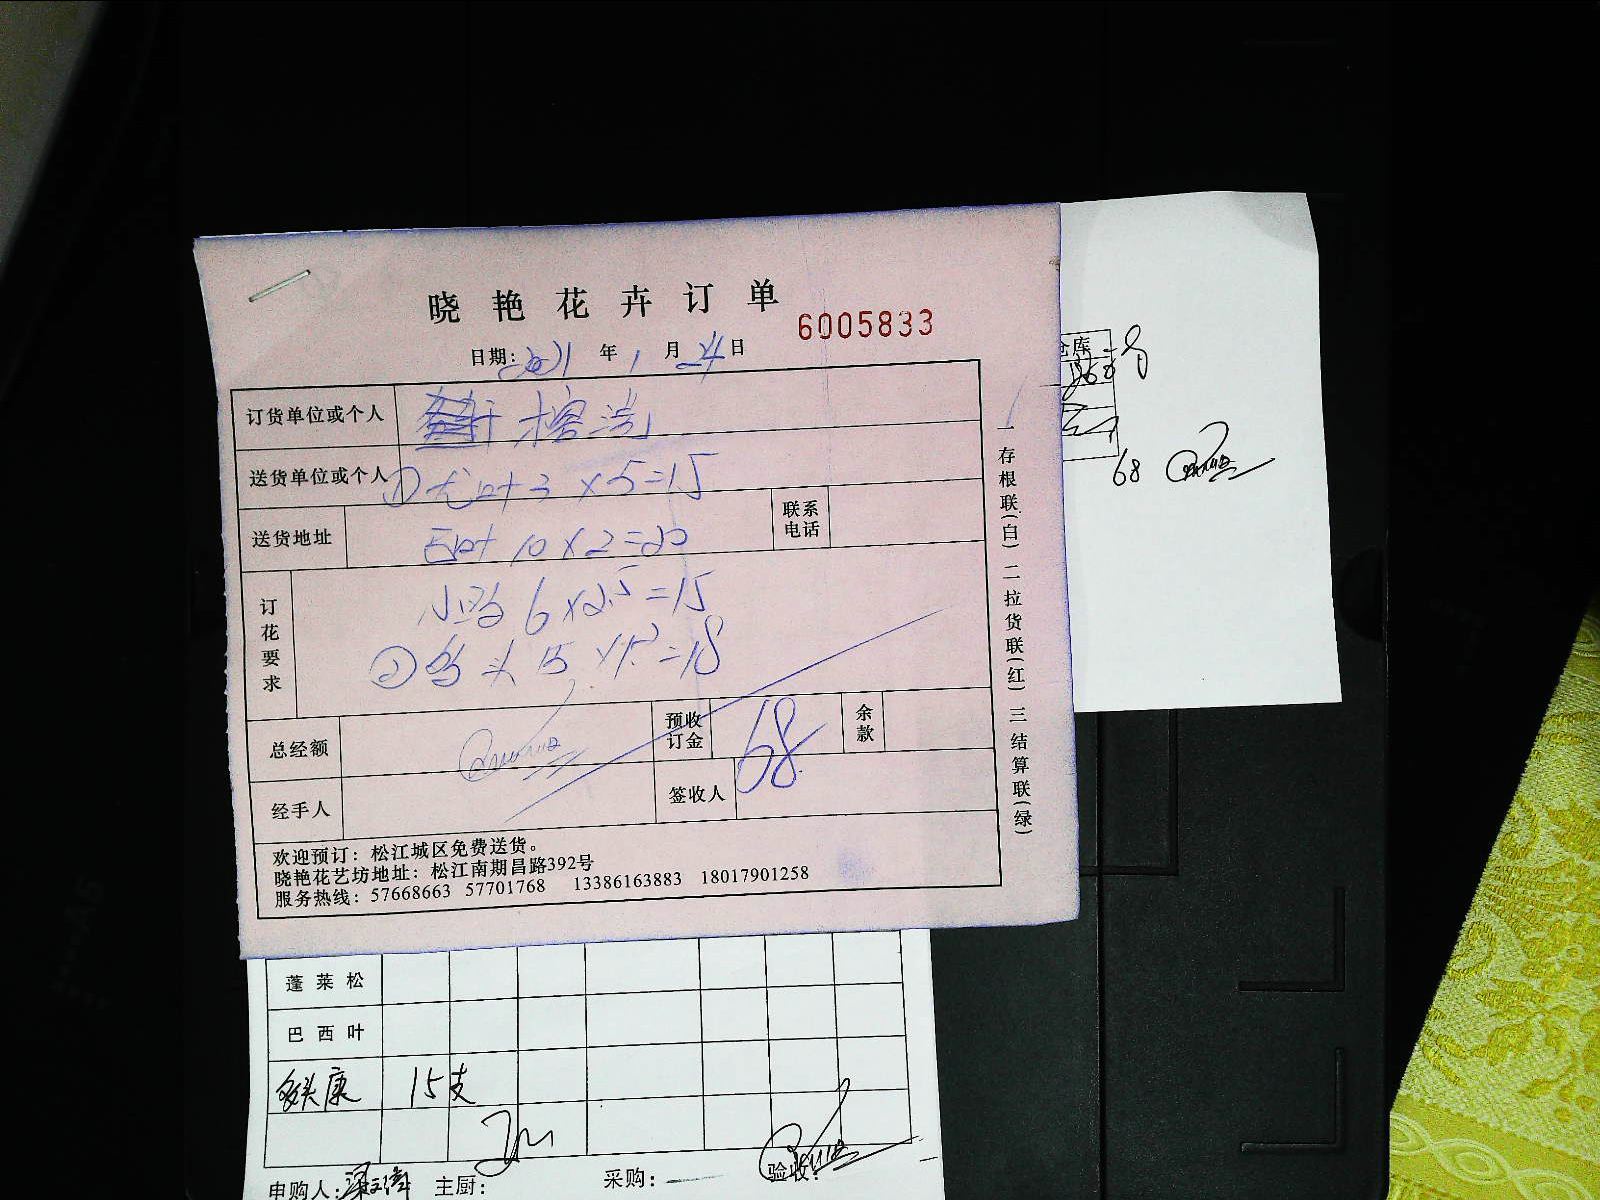 晓艳花卉订单
6005833
日期: 2021 年 1 月 24 日
订货单位或个人
送货单位或个人 ① 尤叶 3 × 5=15
送货地址 叶 10 × 2=20 联系电话
订花要求 小 6 × 2.5 =15
② 头 15 × 1.2 =18
总经额 预收订金 68 余款
经手人 签收人
欢迎预订：松江城区免费送货。
晓艳花艺坊地址：松江南期昌路392号
服务热线：57668663 57701768 13386163883 18017901258
一存根联(白)二拉货联(红)三结算联(绿)
仓库
68
蓬莱松
巴西叶
多头康 15支
申购人: 主厨: 采购: 验收: